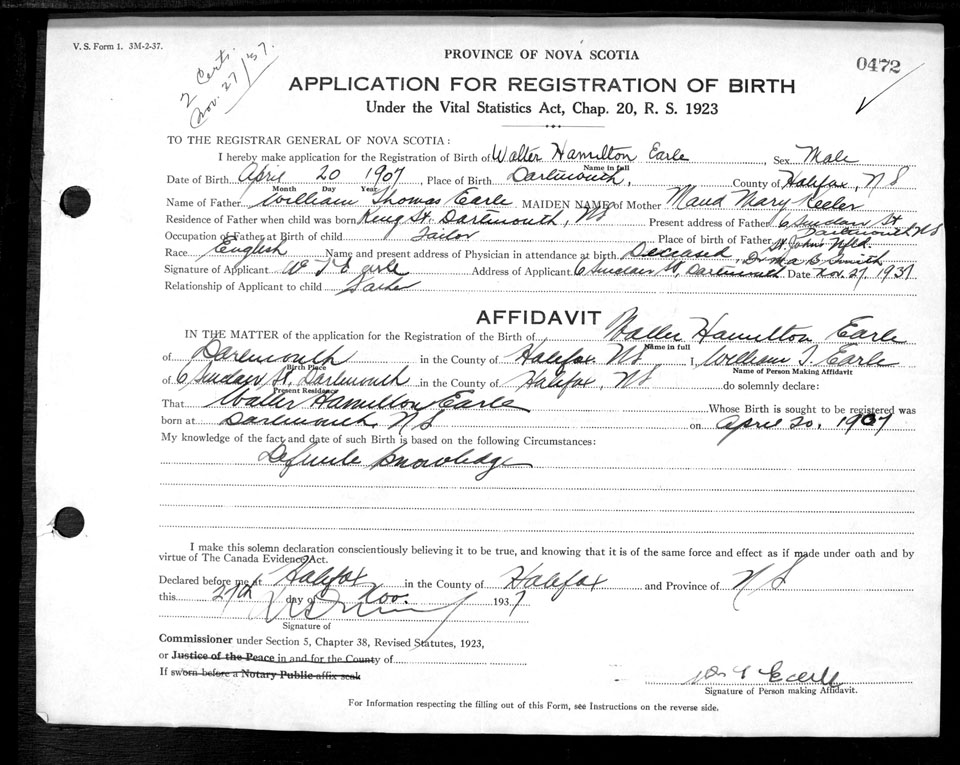 V. S. Form 1. 3M-2-37.
2 Certs.
Nov. 27/37.
PROVINCE OF NOVA SCOTIA
0472
APPLICATION FOR REGISTRATION OF BIRTH
Under the Vital Statistics Act, Chap. 20, R. S. 1923
TO THE REGISTRAR GENERAL OF NOVA SCOTIA:
I hereby make application for the Registration of Birth of Walter Hamilton Earle, Sex Male
Name in full
Date of Birth April 20 1907, Place of Birth Dartmouth, County of Halifax, N S
Month Day Year
Name of Father William Thomas Earle MAIDEN NAME of Mother Maud Mary Keeler
Residence of Father when child was born King St. Dartmouth, NS Present address of Father 6 Sinclair St Dartmouth NS
Occupation of Father at Birth of child Tailor Place of birth of Father St. John's Nfld.
Race English Name and present address of Physician in attendance at birth Deceased, Dr M A B Smith
Signature of Applicant W T Earle Address of Applicant 6 Sinclair St, Dartmouth Date Nov. 27 1937
Relationship of Applicant to child Father
AFFIDAVIT
IN THE MATTER of the application for the Registration of the Birth of Walter Hamilton Earle
Name in full
of Dartmouth in the County of Halifax NS I, William T. Earle
Birth Place Name of Person Making Affidavit
of 6 Sinclair St. Dartmouth in the County of Halifax, NS do solemnly declare:
Present Residence
That Walter Hamilton Earle Whose Birth is sought to be registered was
born at Dartmouth, NS on April 20, 1907
My knowledge of the fact and date of such Birth is based on the following Circumstances:
Definite knowledge
I make this solemn declaration conscientiously believing it to be true, and knowing that it is of the same force and effect as if made under oath and by
virtue of The Canada Evidence Act.
Declared before me at Halifax in the County of Halifax and Province of N S
this 27th day of Nov. 1937
Signature of
Commissioner under Section 5, Chapter 38, Revised Statutes, 1923,
or Justice of the Peace in and for the County of
If sworn before a Notary Public affix seal
Wm T Earle
Signature of Person making Affidavit.
For Information respecting the filling out of this Form, see Instructions on the reverse side.